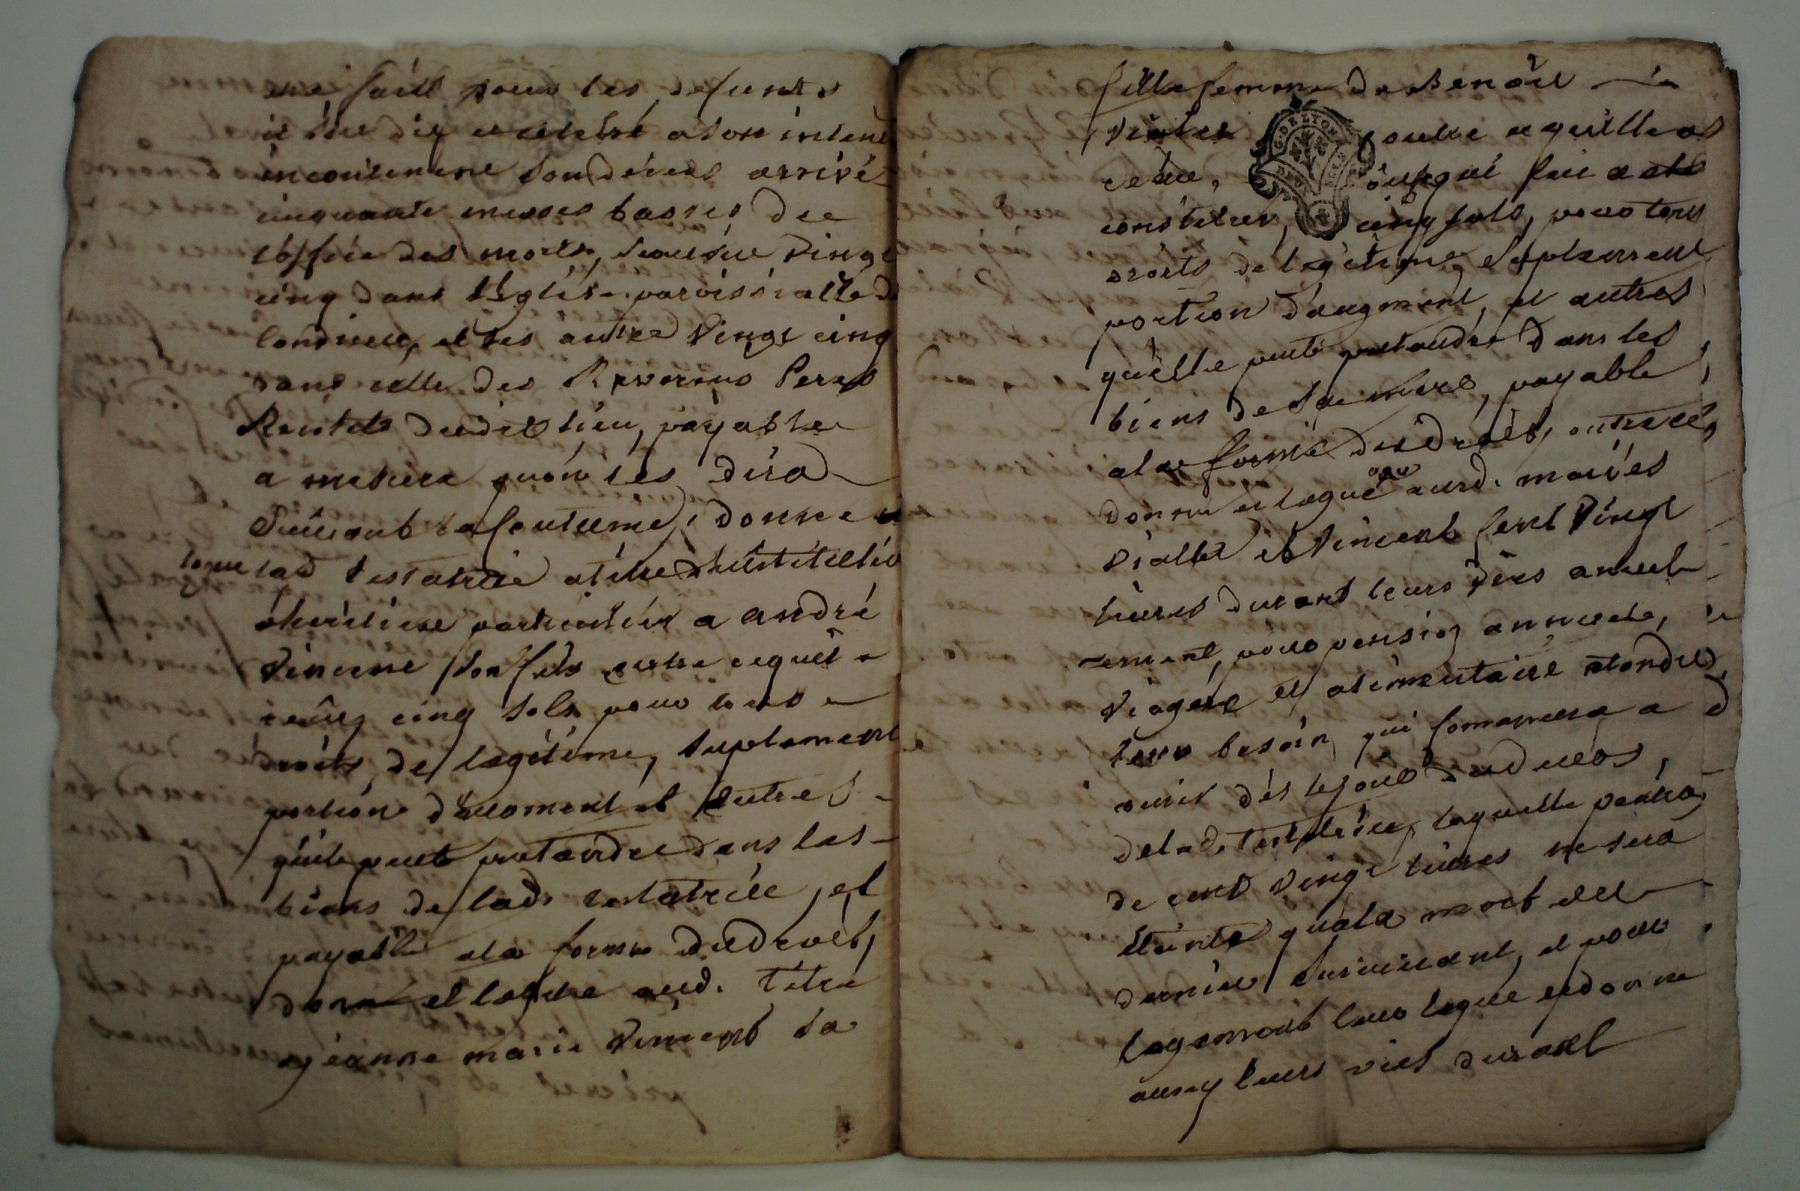 fait pour les defunts
dit et celebré a son intent
incontinent son déces arrivé
cinquante messes basses de
l'office des morts, scavoir vingt
cinq dans l'Eglise paroissialle de
Condrieu, et les autre vingt cinq
dans celle des Reverens Peres
dudit lieu, payable
a mesure qu'on les dira
suivant la coutume, donne et
legue lad testatrice a titre d'institution
héréditaire particuliere a andré
Vincent son fils outre ce qu'il a
reçu cinq sols pour tous
droits de legitime, suplement
portion d'augment et autres
qu'il peut pretandre dans les
biens de lad. testatrice, et
payable ala forme dudroit,
donne et legue aud. titre
a jéanne marie Vincent sa
fille femme de Benoit
Viallet outre ce qu'elle a
reçue, lui a eté
constitué, cinq sols, pour tous
droits de legitime, suplement
portion d'augment, et autres
qu'elle peut pretandre dans les
biens de sa mere, payable
ala forme dudroit, outre ce,
donne et legue aud. mariés
Viallet et Vincent cent vingt
livres durant leurs vies anuel
lement, pour pension annuele,
viagere et alimentaire atandu
leur besoin, qui commancera a
courir dés le jour du deces,
delade testatrice, laquelle pention
de cent vingt livres ne sera
éteinte qu'ala mort du
dernier survivant, et pour
logement leur legue et donne
aussy leurs vies durant